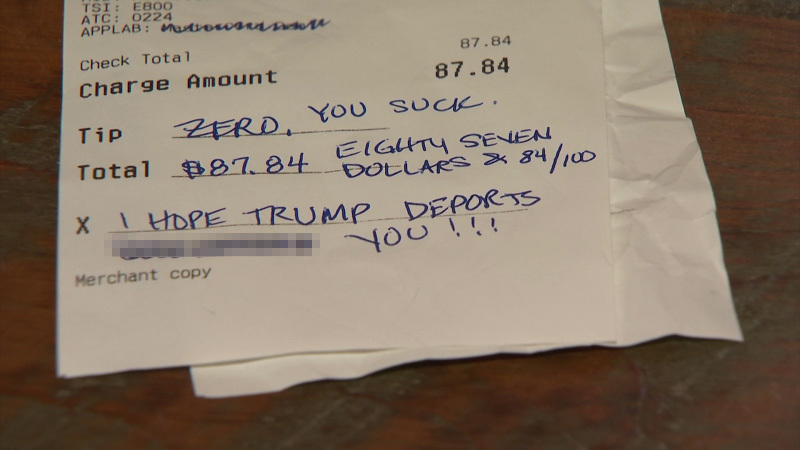 TSI: E800
ATC: 0224
APPLAB:
Check Total 87.84
Charge Amount 87.84
Tip ZERO, YOU SUCK.
Total $87.84 EIGHTY SEVEN
DOLLARS & 84/100
X I HOPE TRUMP DEPORTS
YOU!!!
Merchant copy